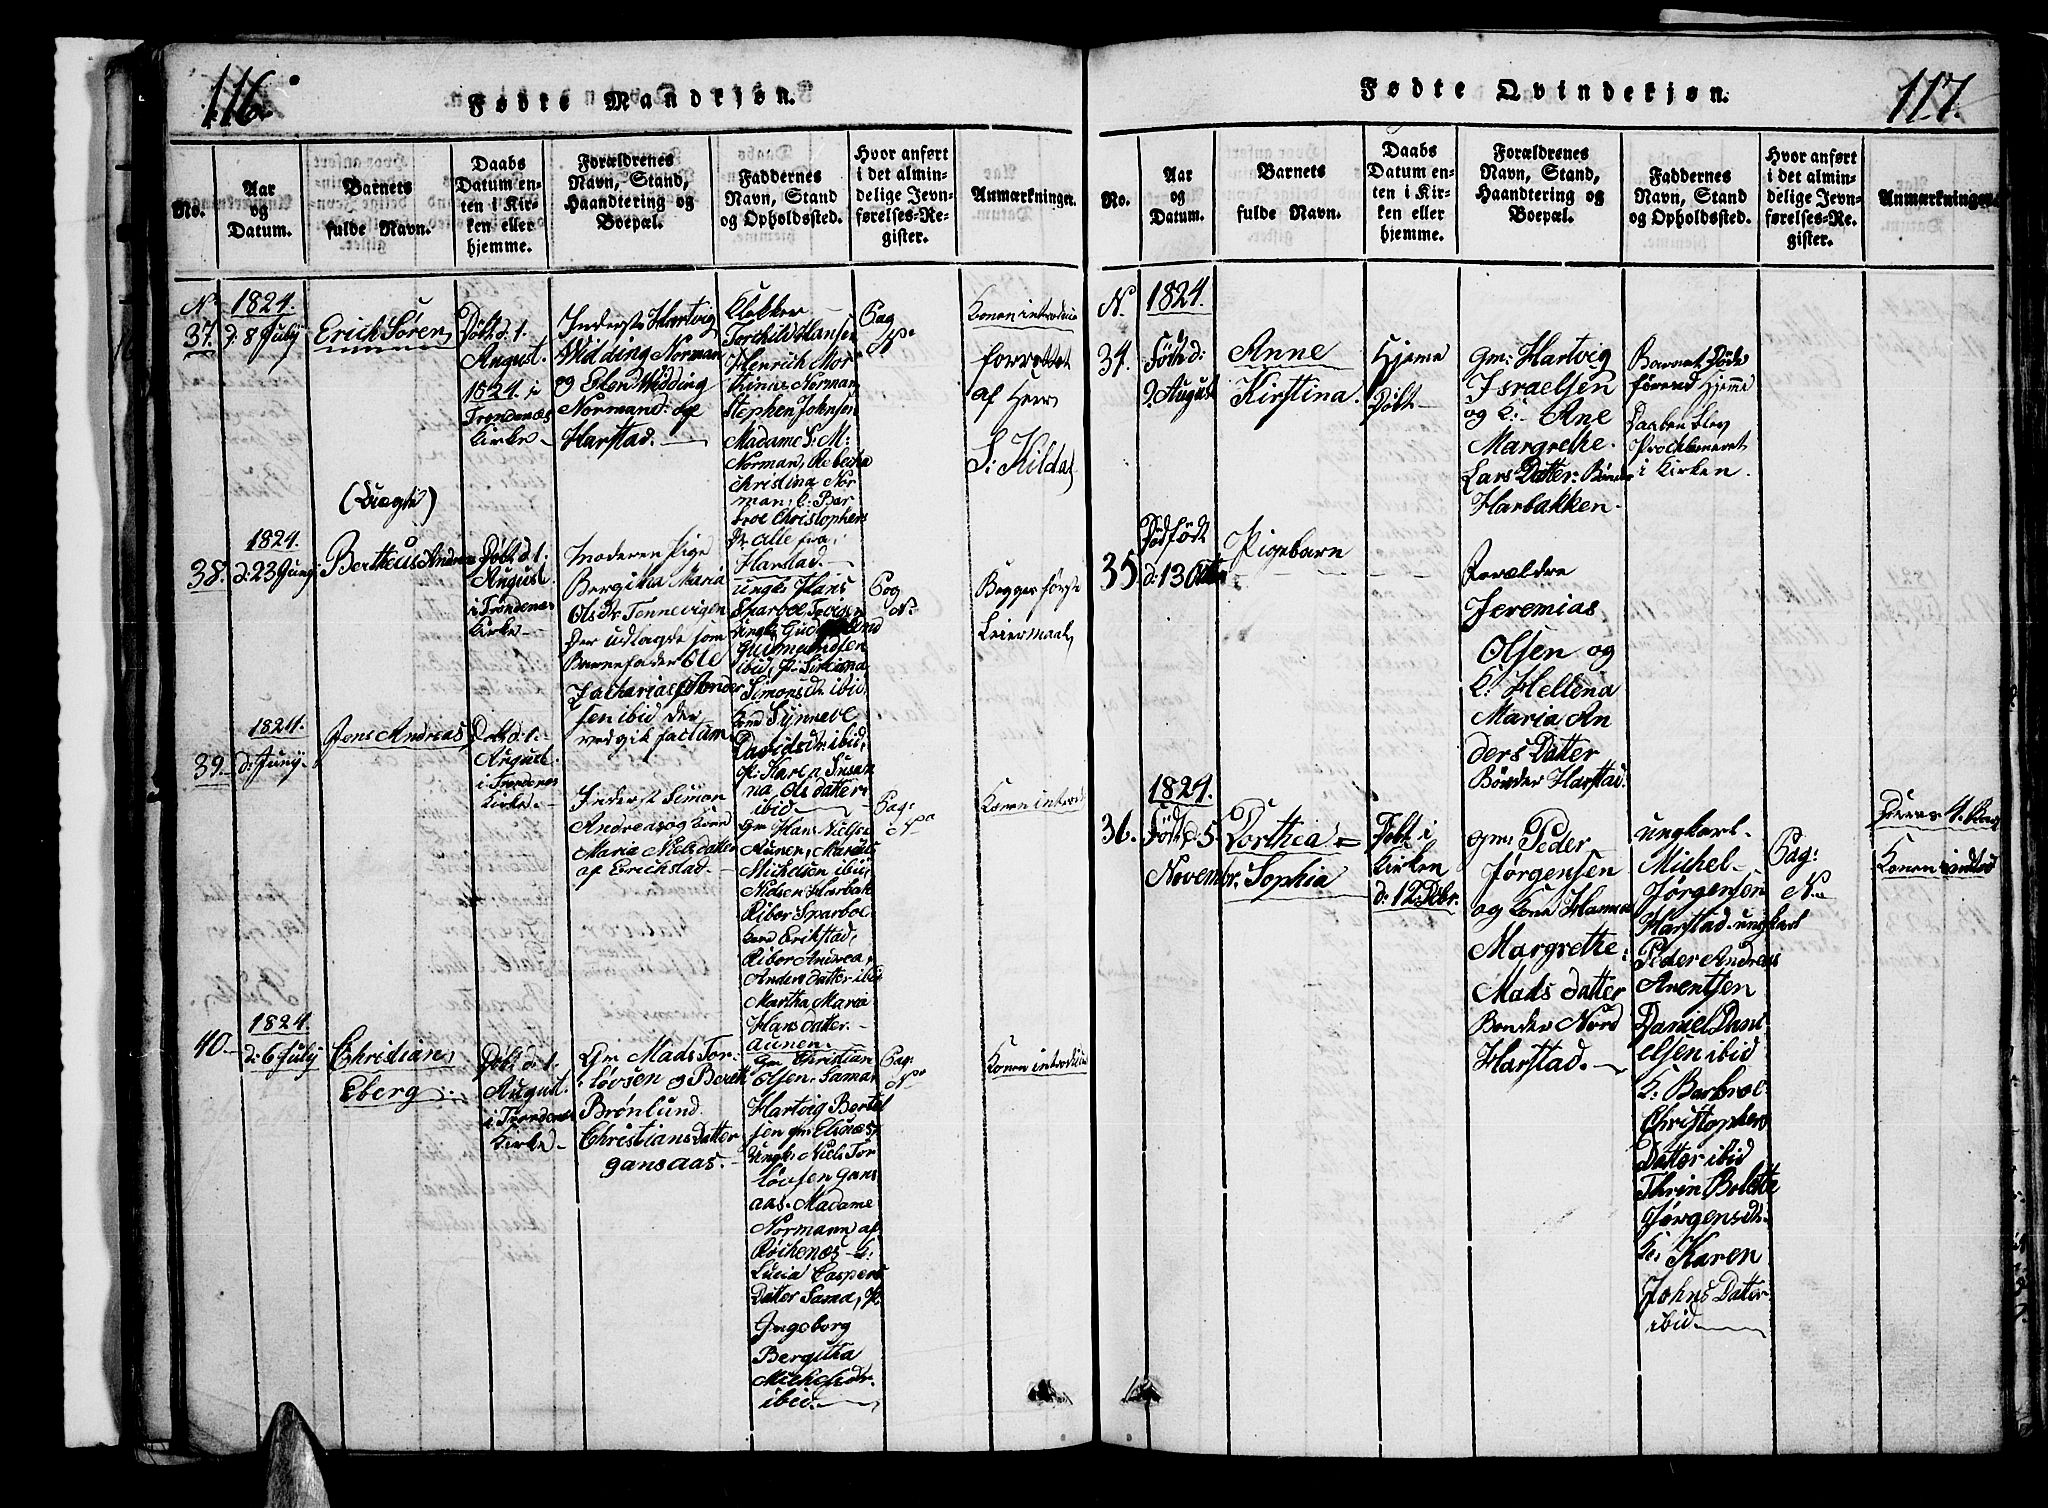 116.
Fødte Mandkjøn.
No.
Aar
og
Datum.
Barnets
fulde Navn.
Daabs
Datum en-
ten i Kir-
ken eller
hjemme.
Forældrenes
Navn, Stand,
Haandtering og
Boepæl.
Faddernes
Navn, Stand
og Opholdssted.
Hvor anført
i det almin-
delige Jevn-
førelses-Re-
gister.
Anmærkninger.
No
37.
1824.
d: 8 July
Erick Søren
Døbt d: 1.
August.
1824 i
Trondenæs
Kirke
Inderste Hartvig
Widding Norman
og Elen Widding
Normand
Harstad.
Klokker
Torchild Hansen
Henrich Mor
thinus Norman
Stephen Johnsen
Madame S: M:
Norman, Rebecka
Christina Nor
man, K: Bar
broe Christophers
Dr alle fra
Harstad.
Pag
No
Konen introduc
forrettet
af Herr
S: Kildal
(Uægte)
38.
1824.
d: 23 Juny
Bertheus Andreas
Døbt d: 1.
August
i Trondenæs
Kirke
Moderen Pige
Bergitha Maria
Ols Dr. Tennevigen
Der udlagde som
Barnefader Ole
Zacharias Ander
sen ibid der
vedgik factum
ungk: Hans
Sparboe Tevigen
Ungk: Gudmund
Gudmundsen
ibid, P: Sirianna
Simonsdr ibid
Kone Synneve
Davidsdr. ibid,
P: Karen Susan
na Olsdatter
ibid
Pag
No
Begges første
Leiermaal
39.
1824.
d: Juny
Jens Andreas
Døbt d: 1.
August.
i Trondenæs
Kirke
Inderst Simon
Andreas og Kone
Maria Nielsdatter
af Erichstad.
Gm Hans Nielsen
Aunen, Marcus
Michelsen ibid,
Nielsen Harbak
Ribor Sparboe
Kone Erikstad,
Ribor Andrea
Anders datter ibid
Martha Maria
Hans datter.
Aunen.
Pag:
No
Konen introd
40.
1824.
d: 6 July
Christian
Eberg
Døbt d: 1.
August.
i Trondenæs
Kirke
Gm Mads Tor:
løvsen og Bereth
Brønlund
Christians Datter
Gansaas.
Gm Christian
Olsen Samar
Hartvig Bertel
sen gm Elgnæs,
Ungk: Niels Tor
løvsen Gans
aas. Madame
Normann af
Røckenæs K:
Lucia Caspers
Datter Sama, P:
Ingeborg
Bergitha
Michelsdr.
ibid.
Pag:
No
Konen introduc
117.
Fødte Qvindekjøn.
No.
Aar
og
Datum.
Barnets
fulde Navn.
Daabs
Datum en-
ten i Kir-
ken eller
hjemme.
Forældrenes
Navn, Stand,
Haandtering og
Boepæl.
Faddernes
Navn, Stand
og Opholdssted.
Hvor anført
i det almin-
delige Jevn-
førelses-Re-
gister.
Anmærkninger.
N.
34.
1824.
Født d:
9 August
Anne
Kirstina.
Hjeme
Døbt
gm: Hartvig
Israelsen
og K: Ane
Margrethe
Lars Datter: Bønder
Harbakken.
Barnet Døde
førend Hjeme
Daaben blev
Proclameret
i Kirken.
35.
Dødfødt
d: 13 Octbr
Pigebarn
Forældre
Jeremias
Olsen og
K: Hellena
Maria An
ders Datter
Bønder Harstad.
36.
1824.
Født d: 5
Novembr.
Dorthea
Sophia
Døbt i
Kirken
d: 12 Debr.
gm: Peder
Jørgensen
og Kone Hanna
Margrethe
Mads datter
Bonder Nord
Harstad.
ungkarl
Michel
Jørgensen
Harstad, ungkarl
Peder Andreas
Arentsen
Daniel Dani
elsen ibid
K: Barbroe
Christophers
Datter ibid
Thrin Bolette
Jørgensdr
K: Karen
Johns Datter
ibid.
Pag:
No
Deres 4. Barn
Konen introd